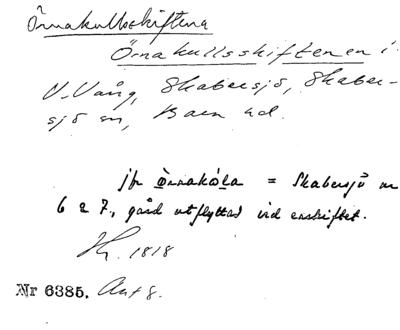 Örnakullsskiftena
Örnakullsskiftenen i
V. Vång, Skabersjö, Skaber-
sjö sn, Bara hd.
jfr Örnakóla = Skabersjö nr
6 & 7, gård utflyttad vid enskiftet.
1818
Nr 6385. Ant 8.